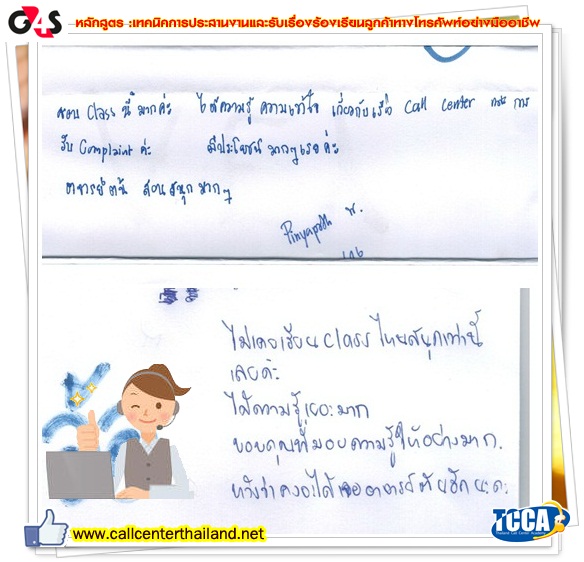 G4S
หลักสูตร :เทคนิคการประสานงานและรับเรื่องร้องเรียนลูกค้าทางโทรศัพท์อย่างมืออาชีพ
ชอบ Class นี้มากค่ะ ได้ความรู้ ความเข้าใจ เกี่ยวกับเรื่อง Call Center และ การ
รับ Complaint ค่ะ มีประโยชน์มากๆเลยค่ะ
อาจารย์ สอนสนุกมากๆ
ไม่เคยเรียน class ไหนสนุกเท่านี้
เลยค่ะ
ได้ความรู้เยอะมาก
ขอบคุณที่มอบความรู้ให้อย่างมาก.
หวังว่าคงจะได้เจออาจารย์อีกนะคะ
www.callcenterthailand.net
TCCA
Thailand Call Center Academy